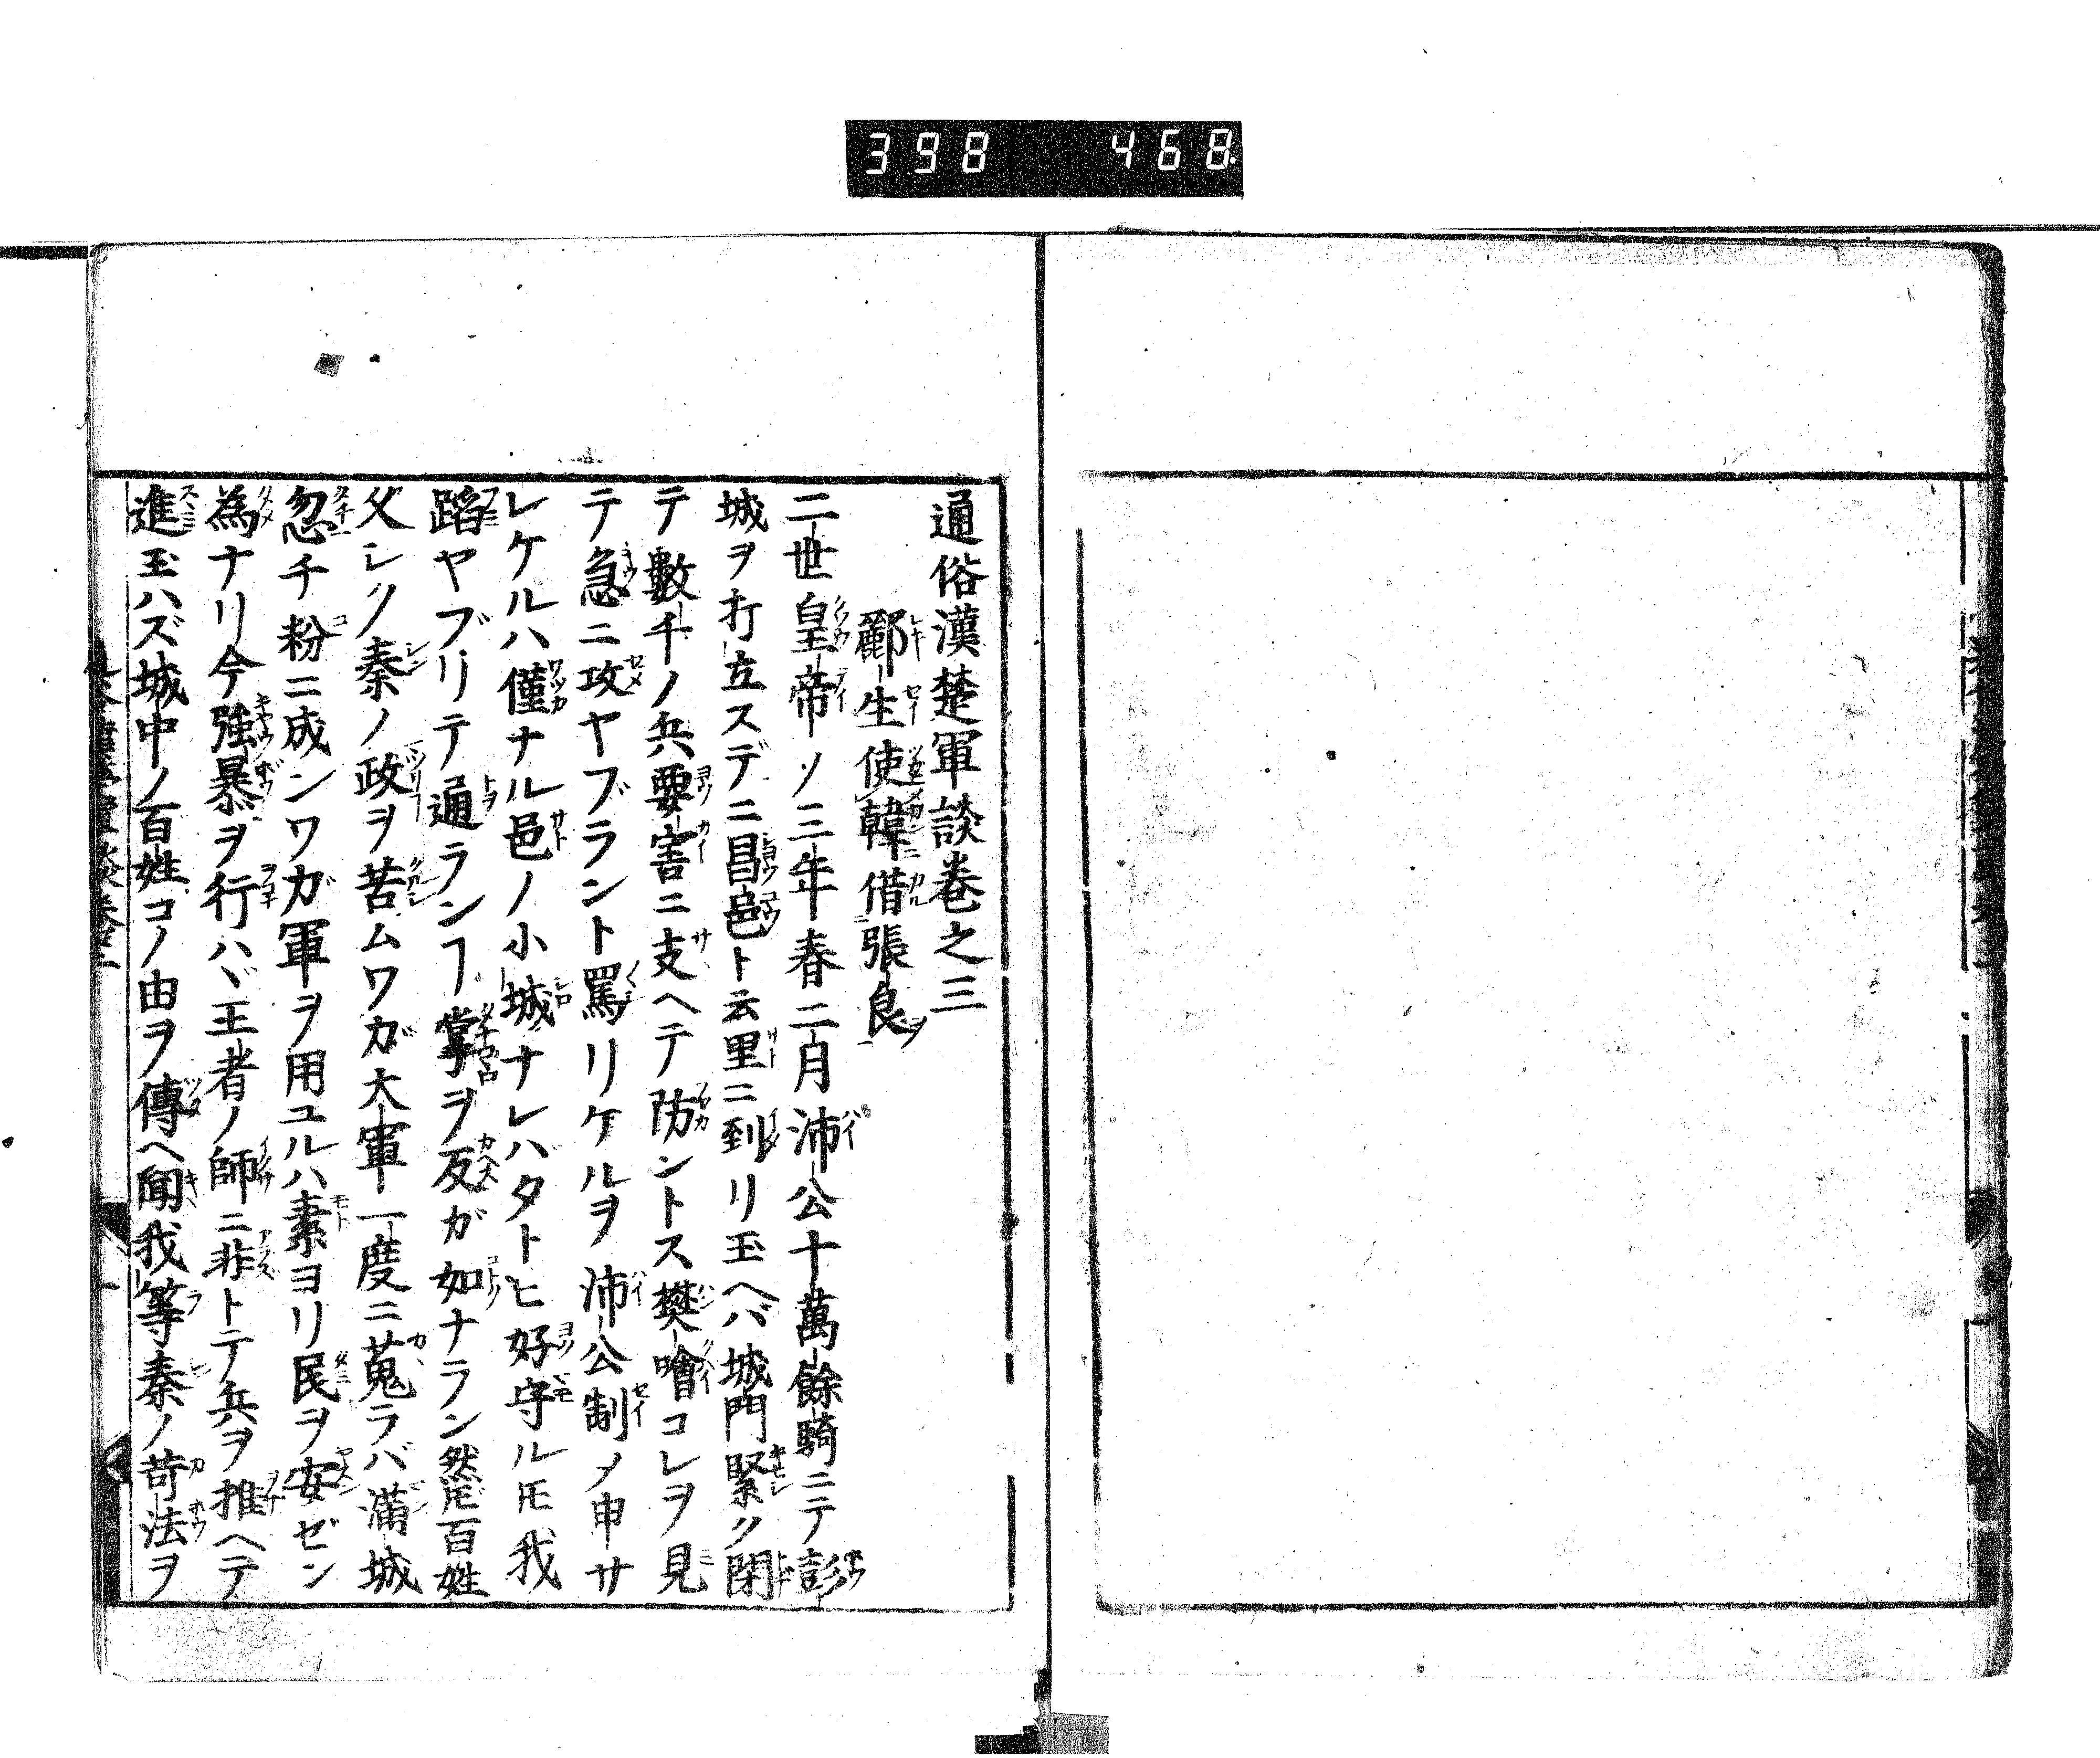 398 468
通俗漢楚軍談巻之三
酈生使韓借張良
二世皇帝ノ三年春二月沛公十萬餘騎ニテ彭
城ヲ打立スデニ昌邑ト云里ニ到リ玉ヘバ城門緊ク閉
テ數千ノ兵要害ニ支ヘテ防ントス樊噲コレヲ見
テ急ニ攻ヤブラント罵リケルヲ沛公制メ申サ
レケルハ僅ナル邑ノ小城ナレバタトヒ好守ルモ我
蹈ヤブリテ通ランヿ掌ヲ反ガ如ナラン然𪜈百姓
父シク秦ノ政ヲ苦ムワガ大軍一度ニ蒐ラバ滿城
忽チ粉ニ成ンワガ軍ヲ用ユルハ素ヨリ民ヲ安ゼン
為ナリ今強暴ヲ行ハヾ王者ノ師ニ非トテ兵ヲ推ヘテ
進玉ハズ城中ノ百姓コノ由ヲ傳ヘ聞我等秦ノ苛法ヲ